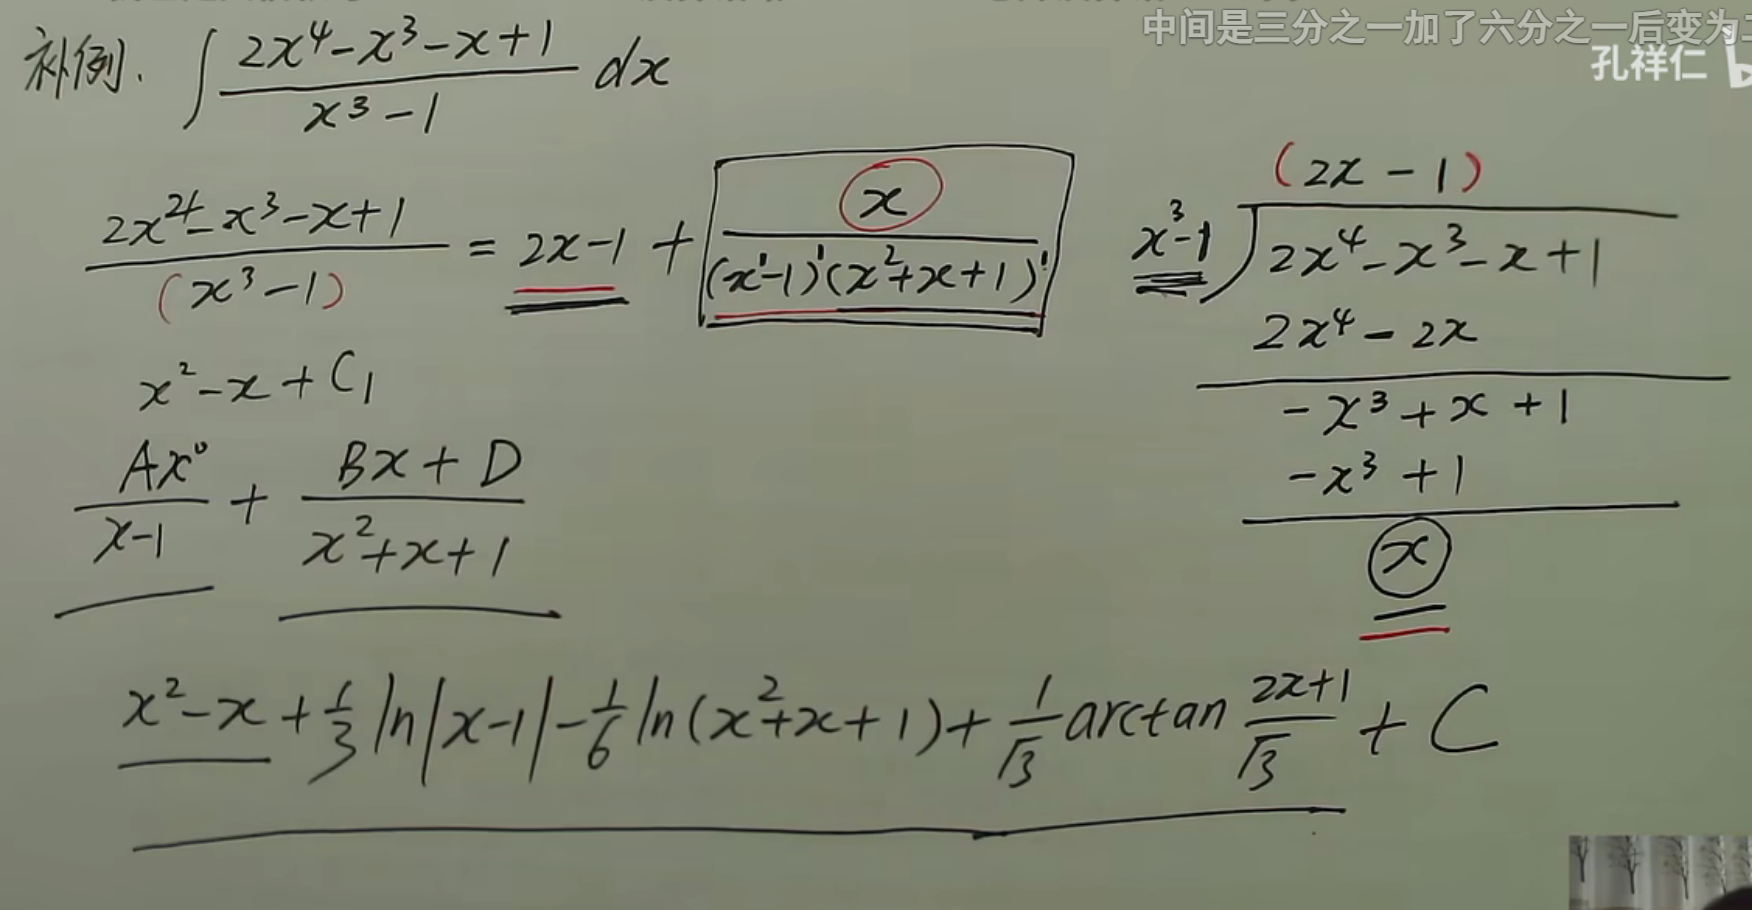 中间是三分之一加了六分之一后变为二
孔祥仁 b
补例. ∫ (2x⁴-x³-x+1)/(x³-1) dx
(2x⁴-x³-x+1)/(x³-1) = 2x-1 + x/((x¹-1)¹(x²+x+1)¹)
x²-x+C₁
Ax⁰/(x-1) + (Bx+D)/(x²+x+1)
(2x-1)
x³-1 ) 2x⁴-x³-x+1
2x⁴-2x
-x³+x+1
-x³+1
x
x²-x+1/3 ln|x-1|-1/6 ln(x²+x+1)+1/√3 arctan (2x+1)/√3 + C